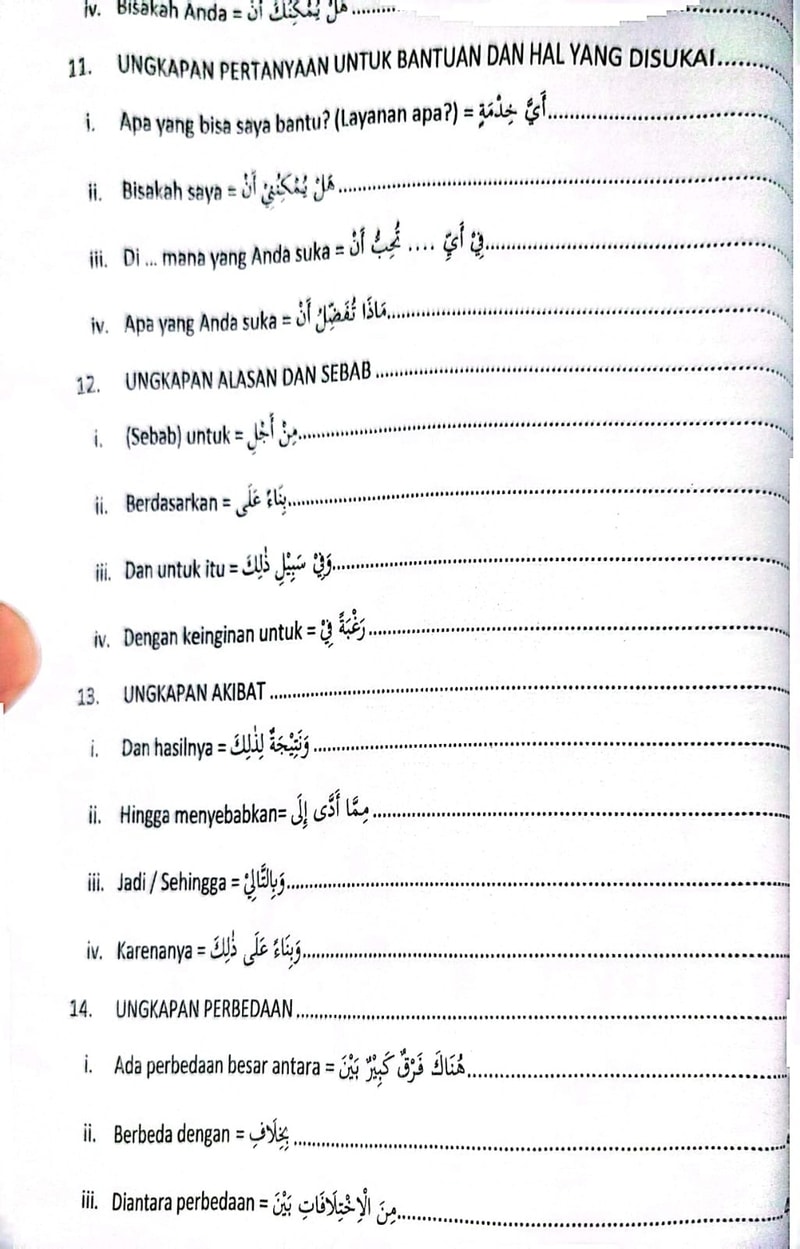 iv. Bisakah Anda = هَلْ يُمْكِنُكَ أَنْ..........
11. UNGKAPAN PERTANYAAN UNTUK BANTUAN DAN HAL YANG DISUKAI..........
i. Apa yang bisa saya bantu? (Layanan apa?) = أَيَّ خِدْمَةٍ..........
ii. Bisakah saya = هَلْ يُمْكِنُنِيْ أَنْ..........
iii. Di ... mana yang Anda suka = فِيْ أَيِّ .... تُحِبُّ أَنْ..........
iv. Apa yang Anda suka = مَاذَا تُفَضِّلُ أَنْ..........
12. UNGKAPAN ALASAN DAN SEBAB..........
i. (Sebab) untuk = مِنْ أَجْلِ..........
ii. Berdasarkan = بِنَاءً عَلَى..........
iii. Dan untuk itu = وَفِيْ سَبِيْلِ ذٰلِكَ..........
iv. Dengan keinginan untuk = رَغْبَةً فِيْ..........
13. UNGKAPAN AKIBAT..........
i. Dan hasilnya = وَنَتِيْجَةٌ لِذٰلِكَ..........
ii. Hingga menyebabkan= مِمَّا أَدَّى إِلَى..........
iii. Jadi / Sehingga = وَبِالتَّالِيْ..........
iv. Karenanya = وَبِنَاءً عَلَى ذٰلِكَ..........
14. UNGKAPAN PERBEDAAN..........
i. Ada perbedaan besar antara = هُنَاكَ فَرْقٌ كَبِيْرٌ بَيْنَ..........
ii. Berbeda dengan = بِخِلَافِ..........
iii. Diantara perbedaan = مِنَ الْاِخْتِلَافَاتِ بَيْنَ..........